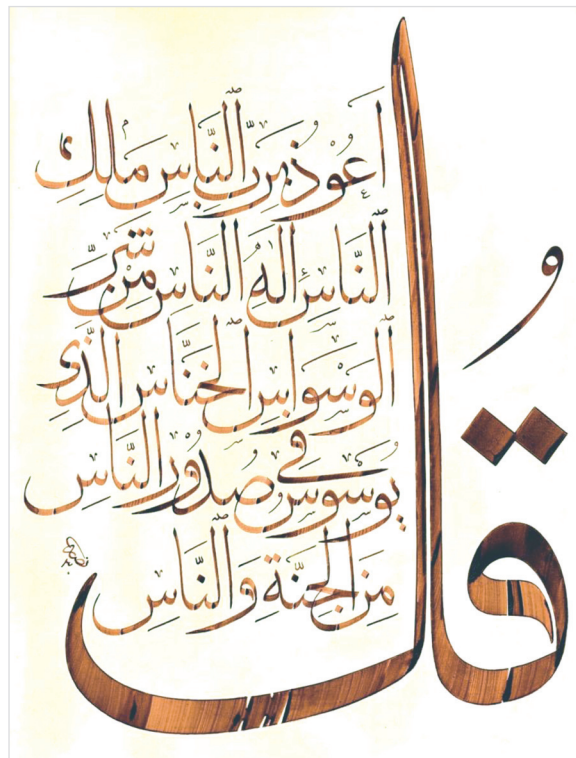 قُل
أَعُوْذُ بِرَبِّ النَّاسِ مَلِكِ
النَّاسِ إِلَٰهِ النَّاسِ مِنْ شَرِّ
الْوَسْوَاسِ الْخَنَّاسِ الَّذِي
يُوَسْوِسُ فِي صُدُوْرِ النَّاسِ
مِنَ الْجِنَّةِ وَالنَّاسِ